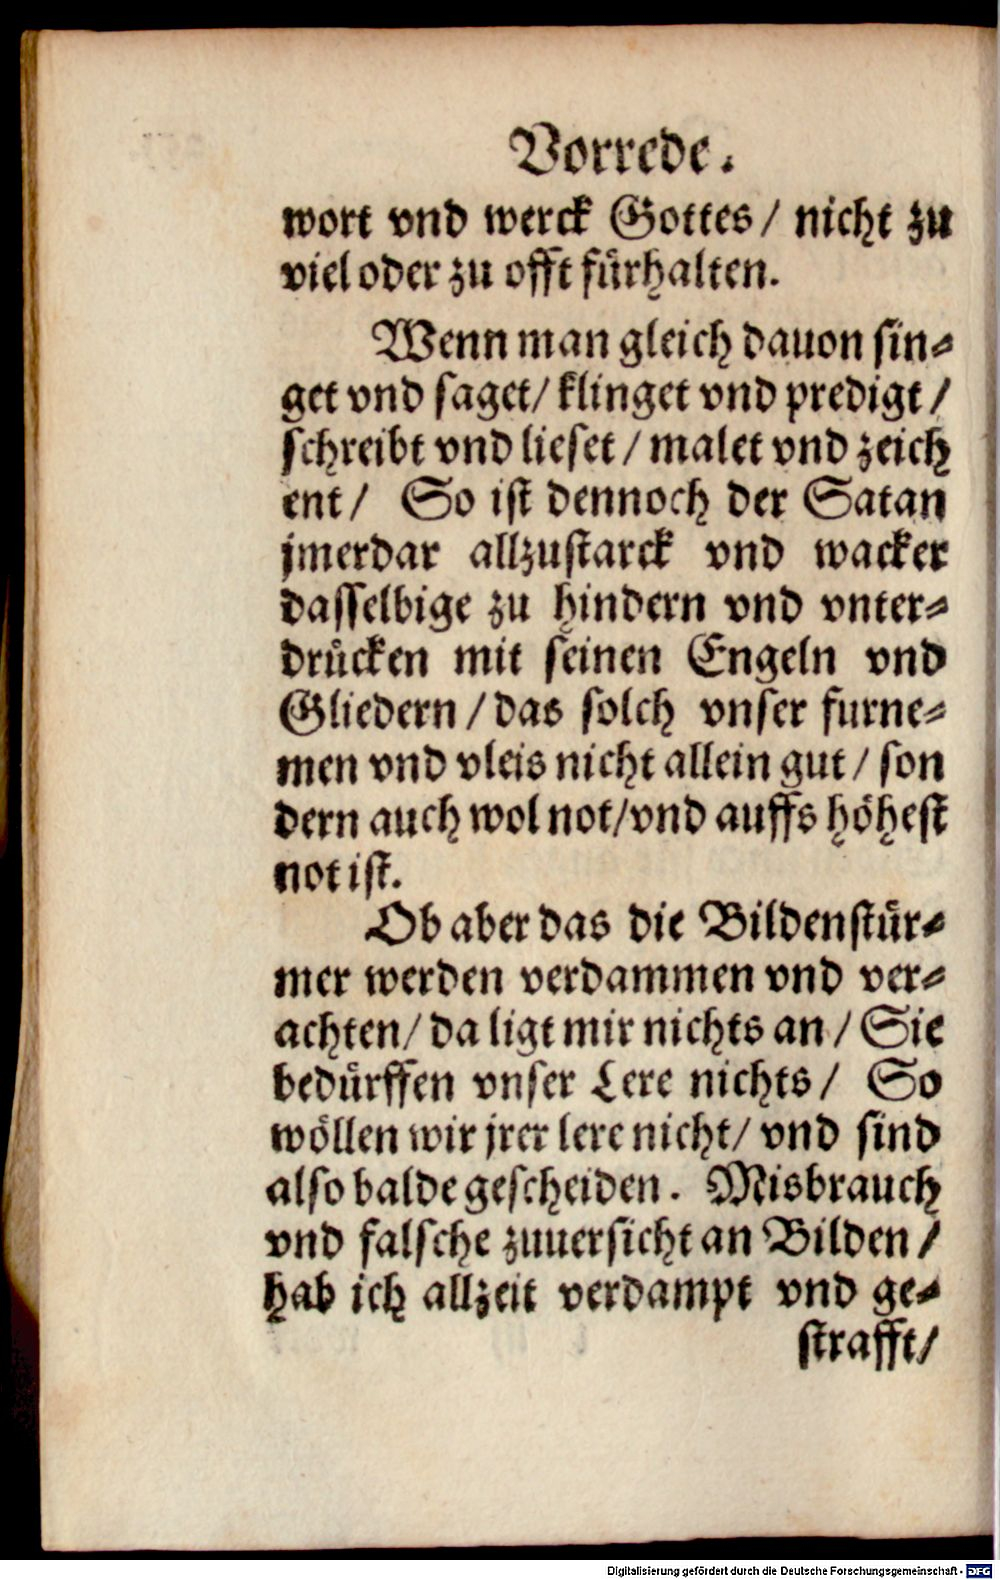 Vorrede.
wort vnd werck Gottes/ nicht zu
viel oder zu offt fürhalten.
Wenn man gleich dauon sin⸗
get vnd saget/ klinget vnd predigt/
schreibt vnd lieset/ malet vnd zeich
ent/ So ist dennoch der Satan
jmerdar allzustarck vnd wacker
dasselbige zu hindern vnd vnter⸗
drücken mit seinen Engeln vnd
Gliedern/ das solch vnser furne⸗
men vnd vleis nicht allein gut/ son
dern auch wol not/ vnd auffs höhest
not ist.
Ob aber das die Bildenstür⸗
mer werden verdammen vnd ver⸗
achten/ da ligt mir nichts an/ Sie
bedürffen vnser Lere nichts/ So
wöllen wir jrer lere nicht/ vnd sind
also balde gescheiden. Misbrauch
vnd falsche zuuersicht an Bilden/
hab ich allzeit verdampt vnd ge⸗
strafft/
Digitalisierung gefördert durch die Deutsche Forschungsgemeinschaft - DFG